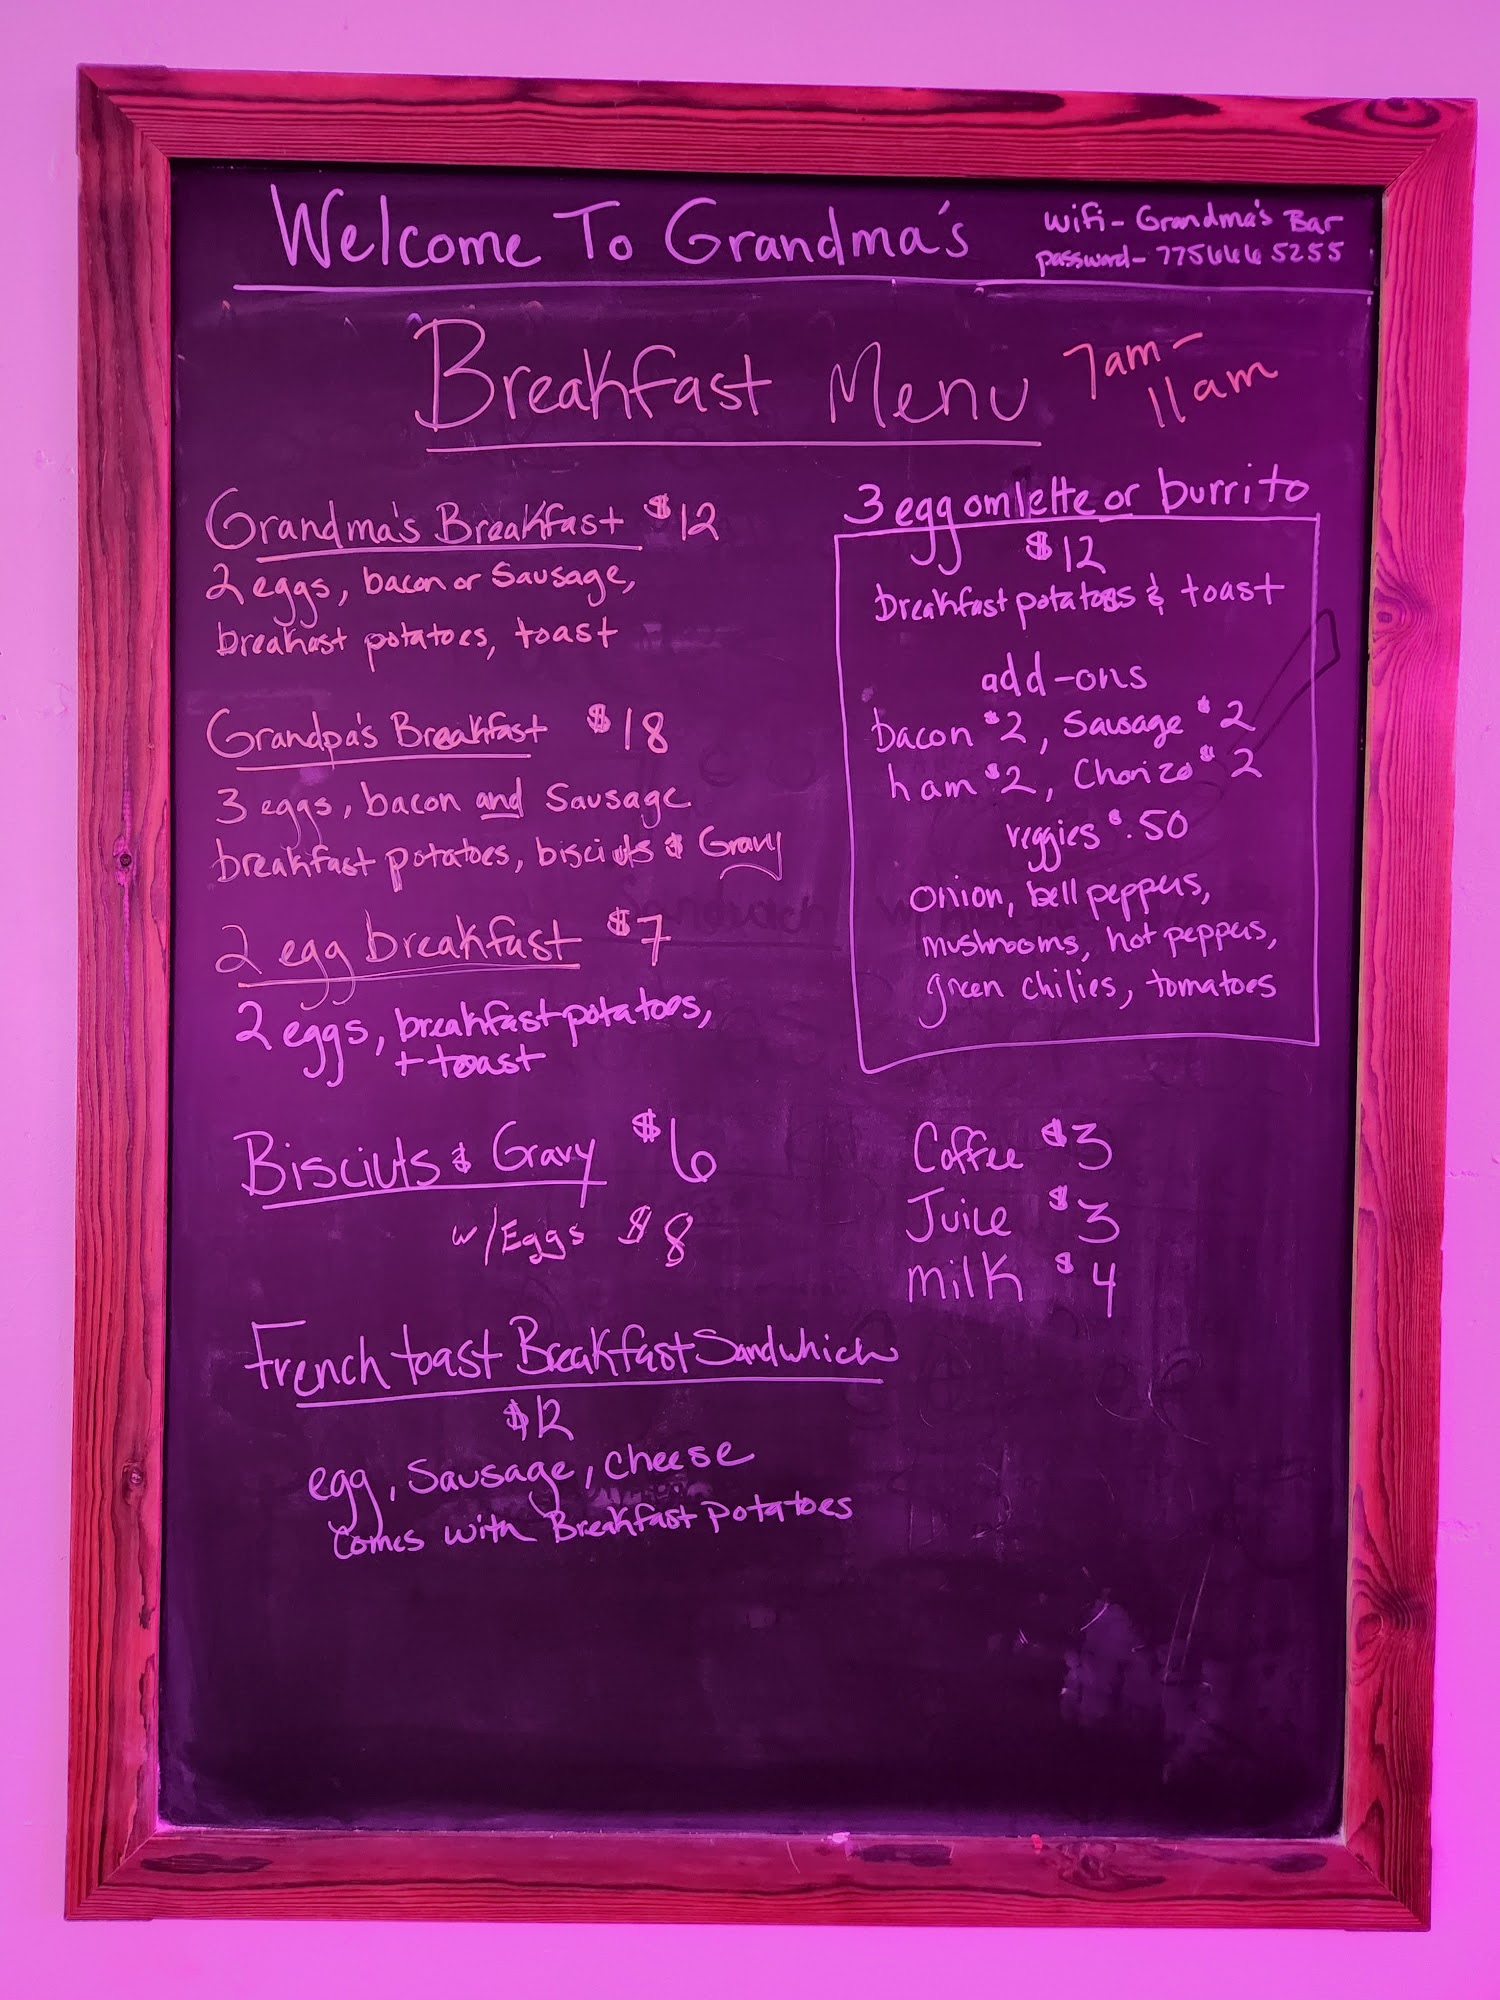 Welcome To Grandma's
wifi- Grandma's Bar
password- 7756665255
Breakfast Menu
7am-
11am
Grandma's Breakfast $12
2 eggs, bacon or Sausage,
breakast potatoes, toast
Grandpa's Breakfast $18
3 eggs, bacon and Sausage
breakfast potatoes, bisciuts & Gravy
2 egg breakfast $7
2 eggs, breakfast potatoes,
+ toast
Bisciuts & Gravy $6
w/Eggs $8
French toast Breakfast Sandwhich
$12
egg, Sausage, cheese
Comes with Breakfast potatoes
3 egg omlette or burrito
$12
breakfast potatoes & toast
add-ons
bacon $2, Sausage $2
ham $2, Chorizo $2
veggies $.50
onion, bell peppers,
mushrooms, hot peppers,
green chilies, tomatoes
Coffee $3
Juice $3
milk $4